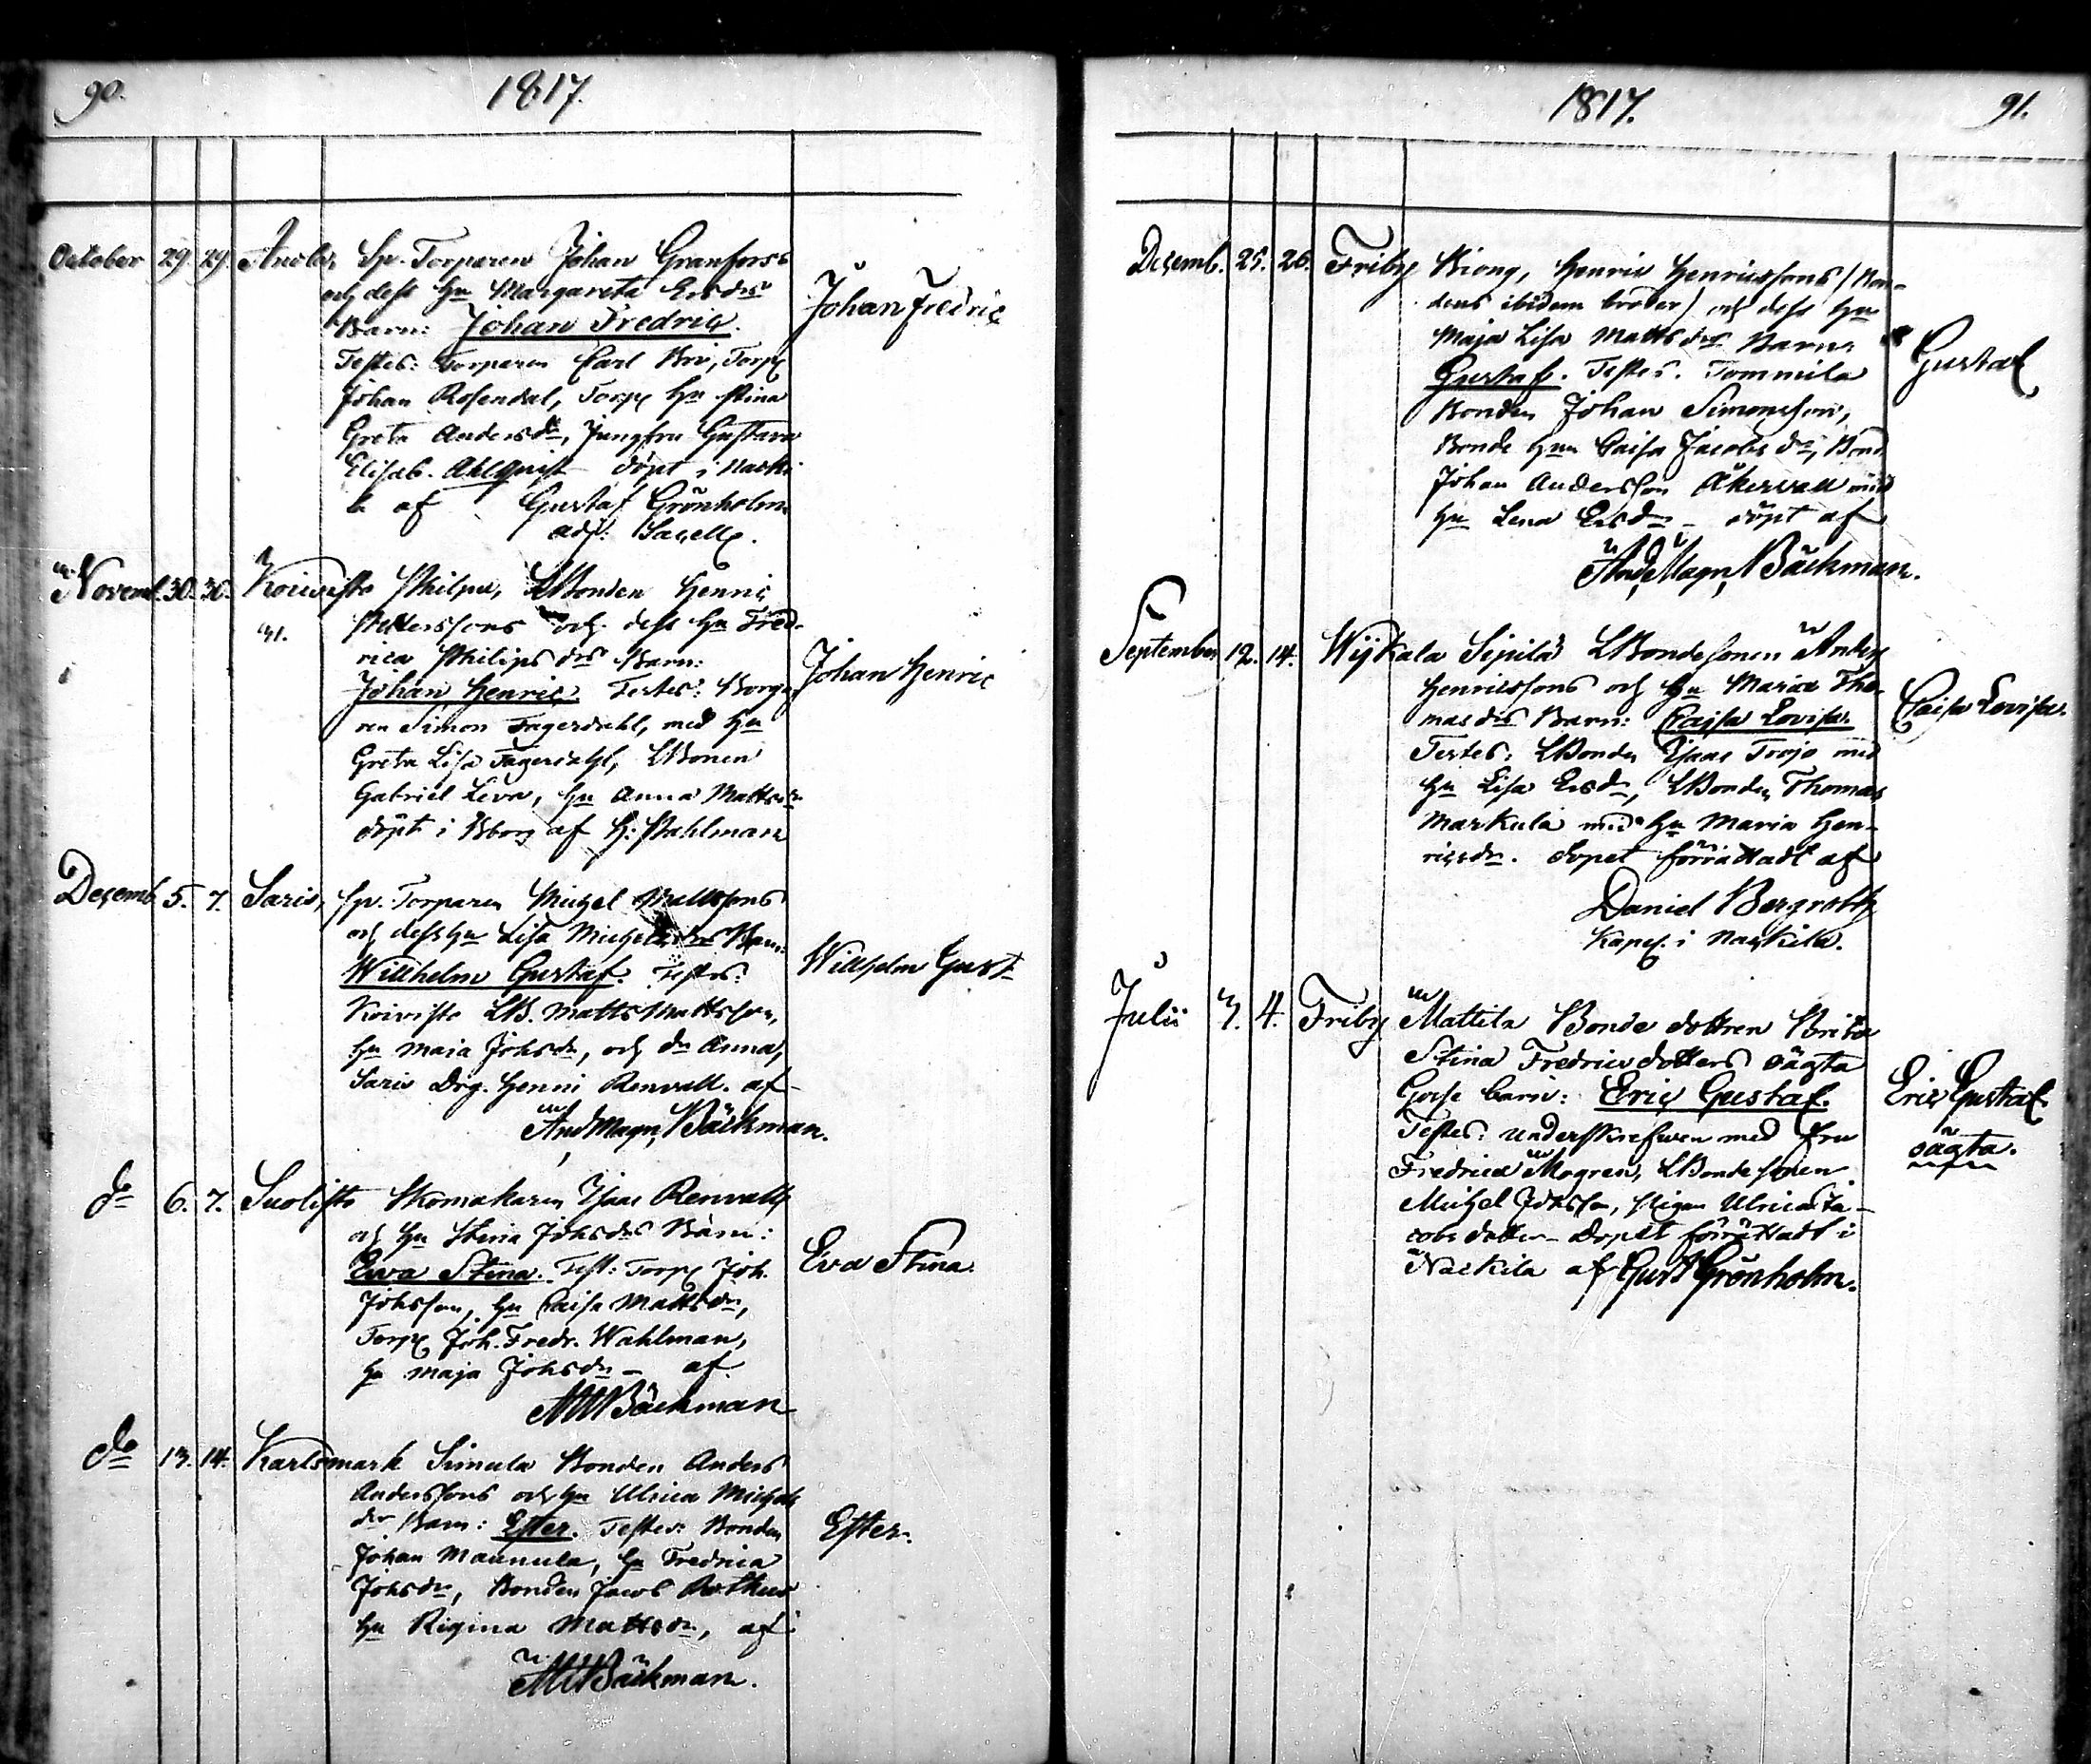 90. 1817.
October 29. 29. Anola, Sp. Torparen Johan Granforss
och dess hu Margareta Ersdrs
Barn: Johan Fredric. Johan Fredric
Testes: Torparen Carl Bri, Torp.
Johan Rosendal, Torp. hu Stina
Greta Andersdr, Jungfru Gustava
Elisab. Ahlqvist döpt i Nacki
la af Gustaf Grönholm
adj. Sacell.
Novemb. 30. 30. Koivisto Philpu, LBonden Henric
31. Pettersons och dess hu Fred-
rica Philipsdrs Barn:
Johan Henric. Testes: Borga- Johan Henric
ren Simon Fagerdahl, med hu
Greta Lisa Fagerdahl, LBonen
Gabriel Leva, hu Anna Mattsdr
döpt i Bborg af H: Stahlman
Decemb. 5. 7. Saris, Sp. Torparen Michel Mattsons
och dess hu Lisa Michelsdrs Barn:
Willhelm Gustaf. Testes: Willhelm Gust
Koivisto LB. Matts Mattsson,
hu Maia Johsdr, och dr Anna,
Saris Drg. Henric Renvall. af
And Magn, Bäckman.
do 6. 7. Suolisto Skomakaren Isaac Renvalls
och hu Stina Johsdrs Barn:
Ewa Stina. Test: Torp. Joh. Eva Stina.
Johsson, hu Caisa Mattsdr,
Torp. Joh. Fredr. Wahlman,
hu Maja Johsdr – af
AMBäckman
do 13. 14. Karlsmark Simula Bonden Anders
Anderssons och hu Ulrica Michels
dr Barn: Ester. Testes: Bonden Ester.
Johan Maunula, hu Fredrica
Johsdr, Bonden Jacob
hu Rigina Mattsdr, af
AMBäckman.
1817. 91.
Decemb. 25. 26. Friby Kiong, Henric Henricssons (Bon-
dens ibidem broder) och dess hu
Maja Lisa Mattsdrs Barn:
Gustaf. Testes. Tommila Gustaf
Bonden Johan Simonsson,
Bonde hun Caisa Jacobsdr, Bond.
Johan Andersson Åkervall med
hu Lena Ersdr – döpt af
And, Magn, Bäckman.
September 12. 14. Wijkala Sipilä LBondesonen Anders
Henricssons och hu Maria Tho-
masdrs Barn: Cajsa Lovisa. Caisa Lovisa.
Testes: LBonden Isaac Trojo med
hu Lisa Ersdr, LBonden Thomas
Markula med hu Maria Hen-
ricsdr. dopet förrättadt af
Daniel Bergroth
Kapel. i Nackila.
Julii 3. 4. Friby Mattila Bonde dottren Brita
Stina Fredricsdotters oägta
Gosse barn: Eric Gustaf. Eric Gustaf.
Testes: Underskrefwen med fru oägta.
Fredrica Mogren, LBondesonen
Michel Johsson, Pigan Ulrica Ja-
cobsdotter – Dopet förrättadt i
Nackila af Gust Grönholm.